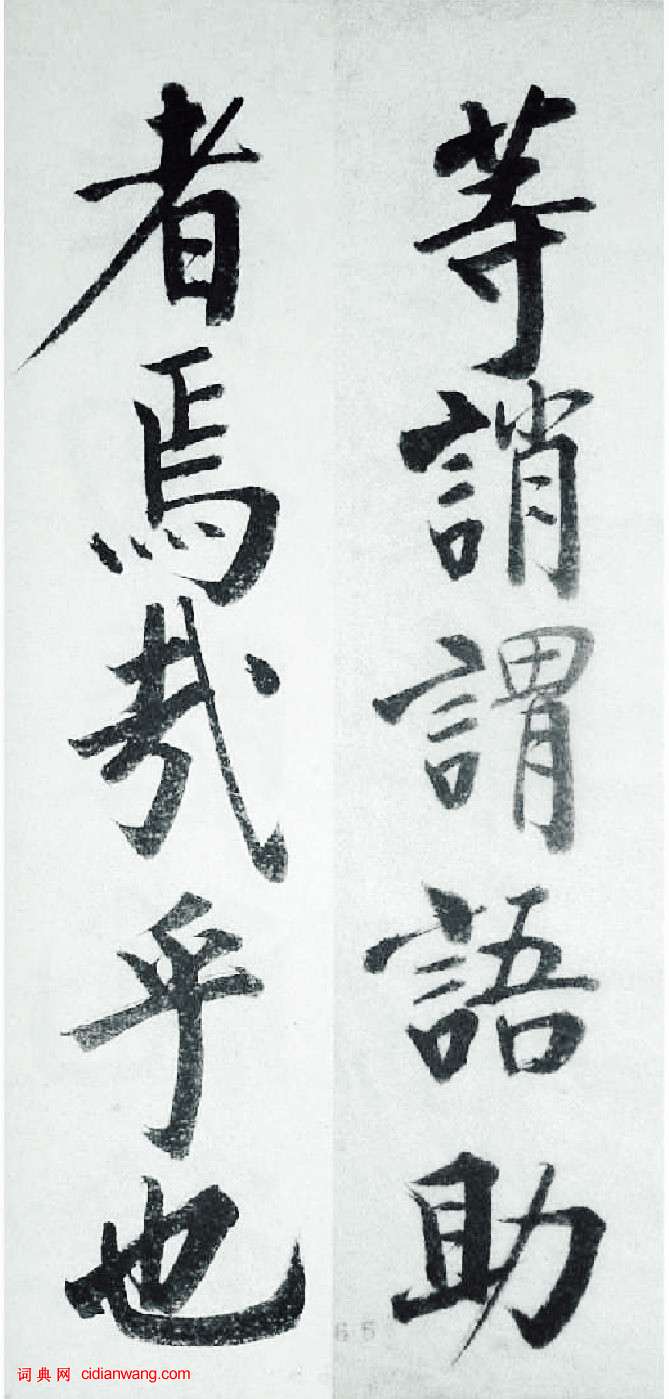 等誚謂語助
者焉哉乎也
65
词典网 cidianwang.com